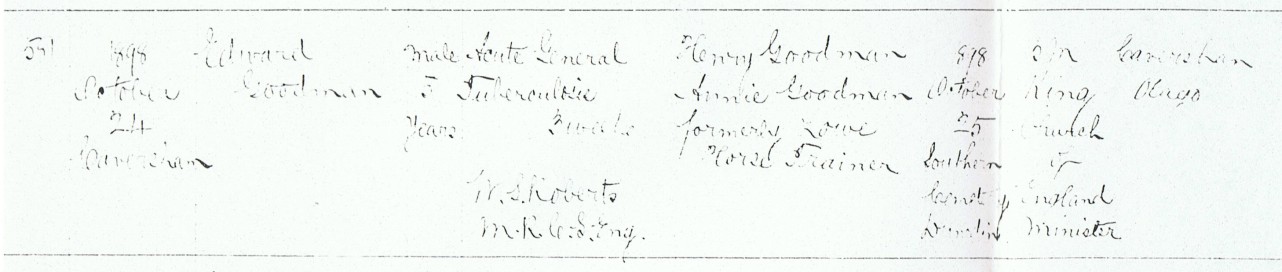 541 1898 Edward Male Acute General Henry Goodman 1898 King Caversham
October Goodman 5 Tuberculosis Annie Goodman October Otago
24 Years 3 weeks formerly Rowe 25 Church
Caversham Horse Trainer Southern of
W. S. Roberts Cemet'y England
M.R.C.S. Eng. Dunedin Minister